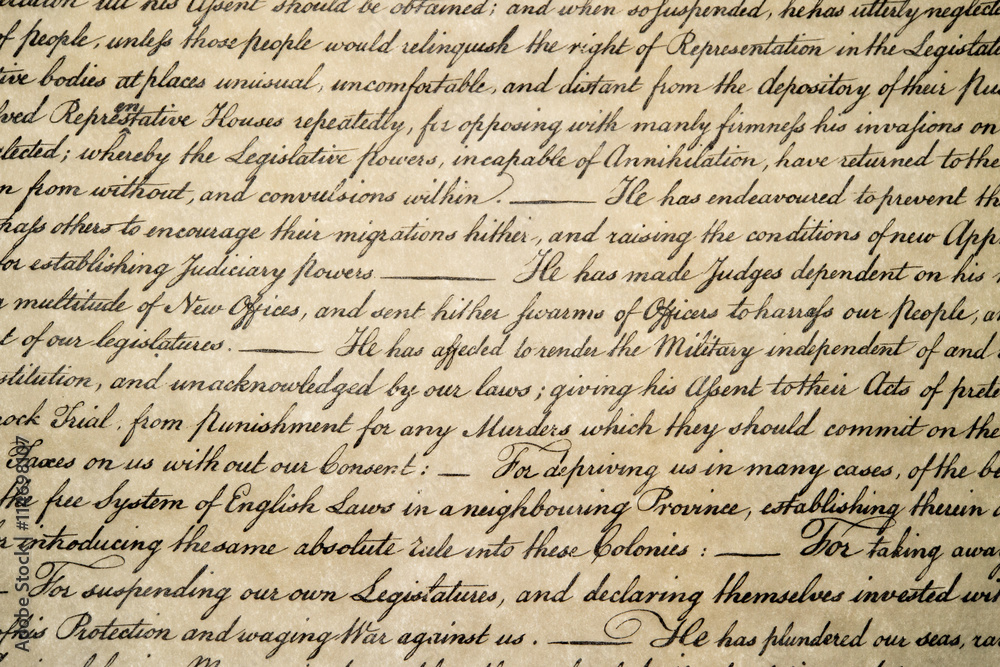 till his Assent should be obtained; and when so suspended, he has utterly neglecte
f people, unless those people would relinquish the right of Representation in the Legislat
tive bodies at places unusual, uncomfortable, and distant from the depository of their Pu
lved Represtative Houses repeatedly, for opposing with manly firmness his invasions on
en
elected; whereby the Legislative powers, incapable of Annihilation, have returned to the
n from without, and convulsions within. —— He has endeavoured to prevent th
pass others to encourage their migrations hither, and raising the conditions of new App
for establishing Judiciary powers —— He has made Judges dependent on his
a multitude of New Offices, and sent hither swarms of Officers to harrass our People, a
t of our legislatures. —— He has affected to render the Military independent of and
stitution, and unacknowledged by our laws; giving his Assent to their Acts of prete
ock Trial, from Punishment for any Murders which they should commit on the
Taxes on us without our Consent: — For depriving us in many cases, of the be
the free System of English Laws in a neighbouring Province, establishing therein a
r introducing the same absolute rule into these Colonies: —— For taking awa
— For suspending our own Legislatures, and declaring themselves invested wit
f his Protection and waging War against us. —— He has plundered our seas, ra
Adobe Stock | #112698107